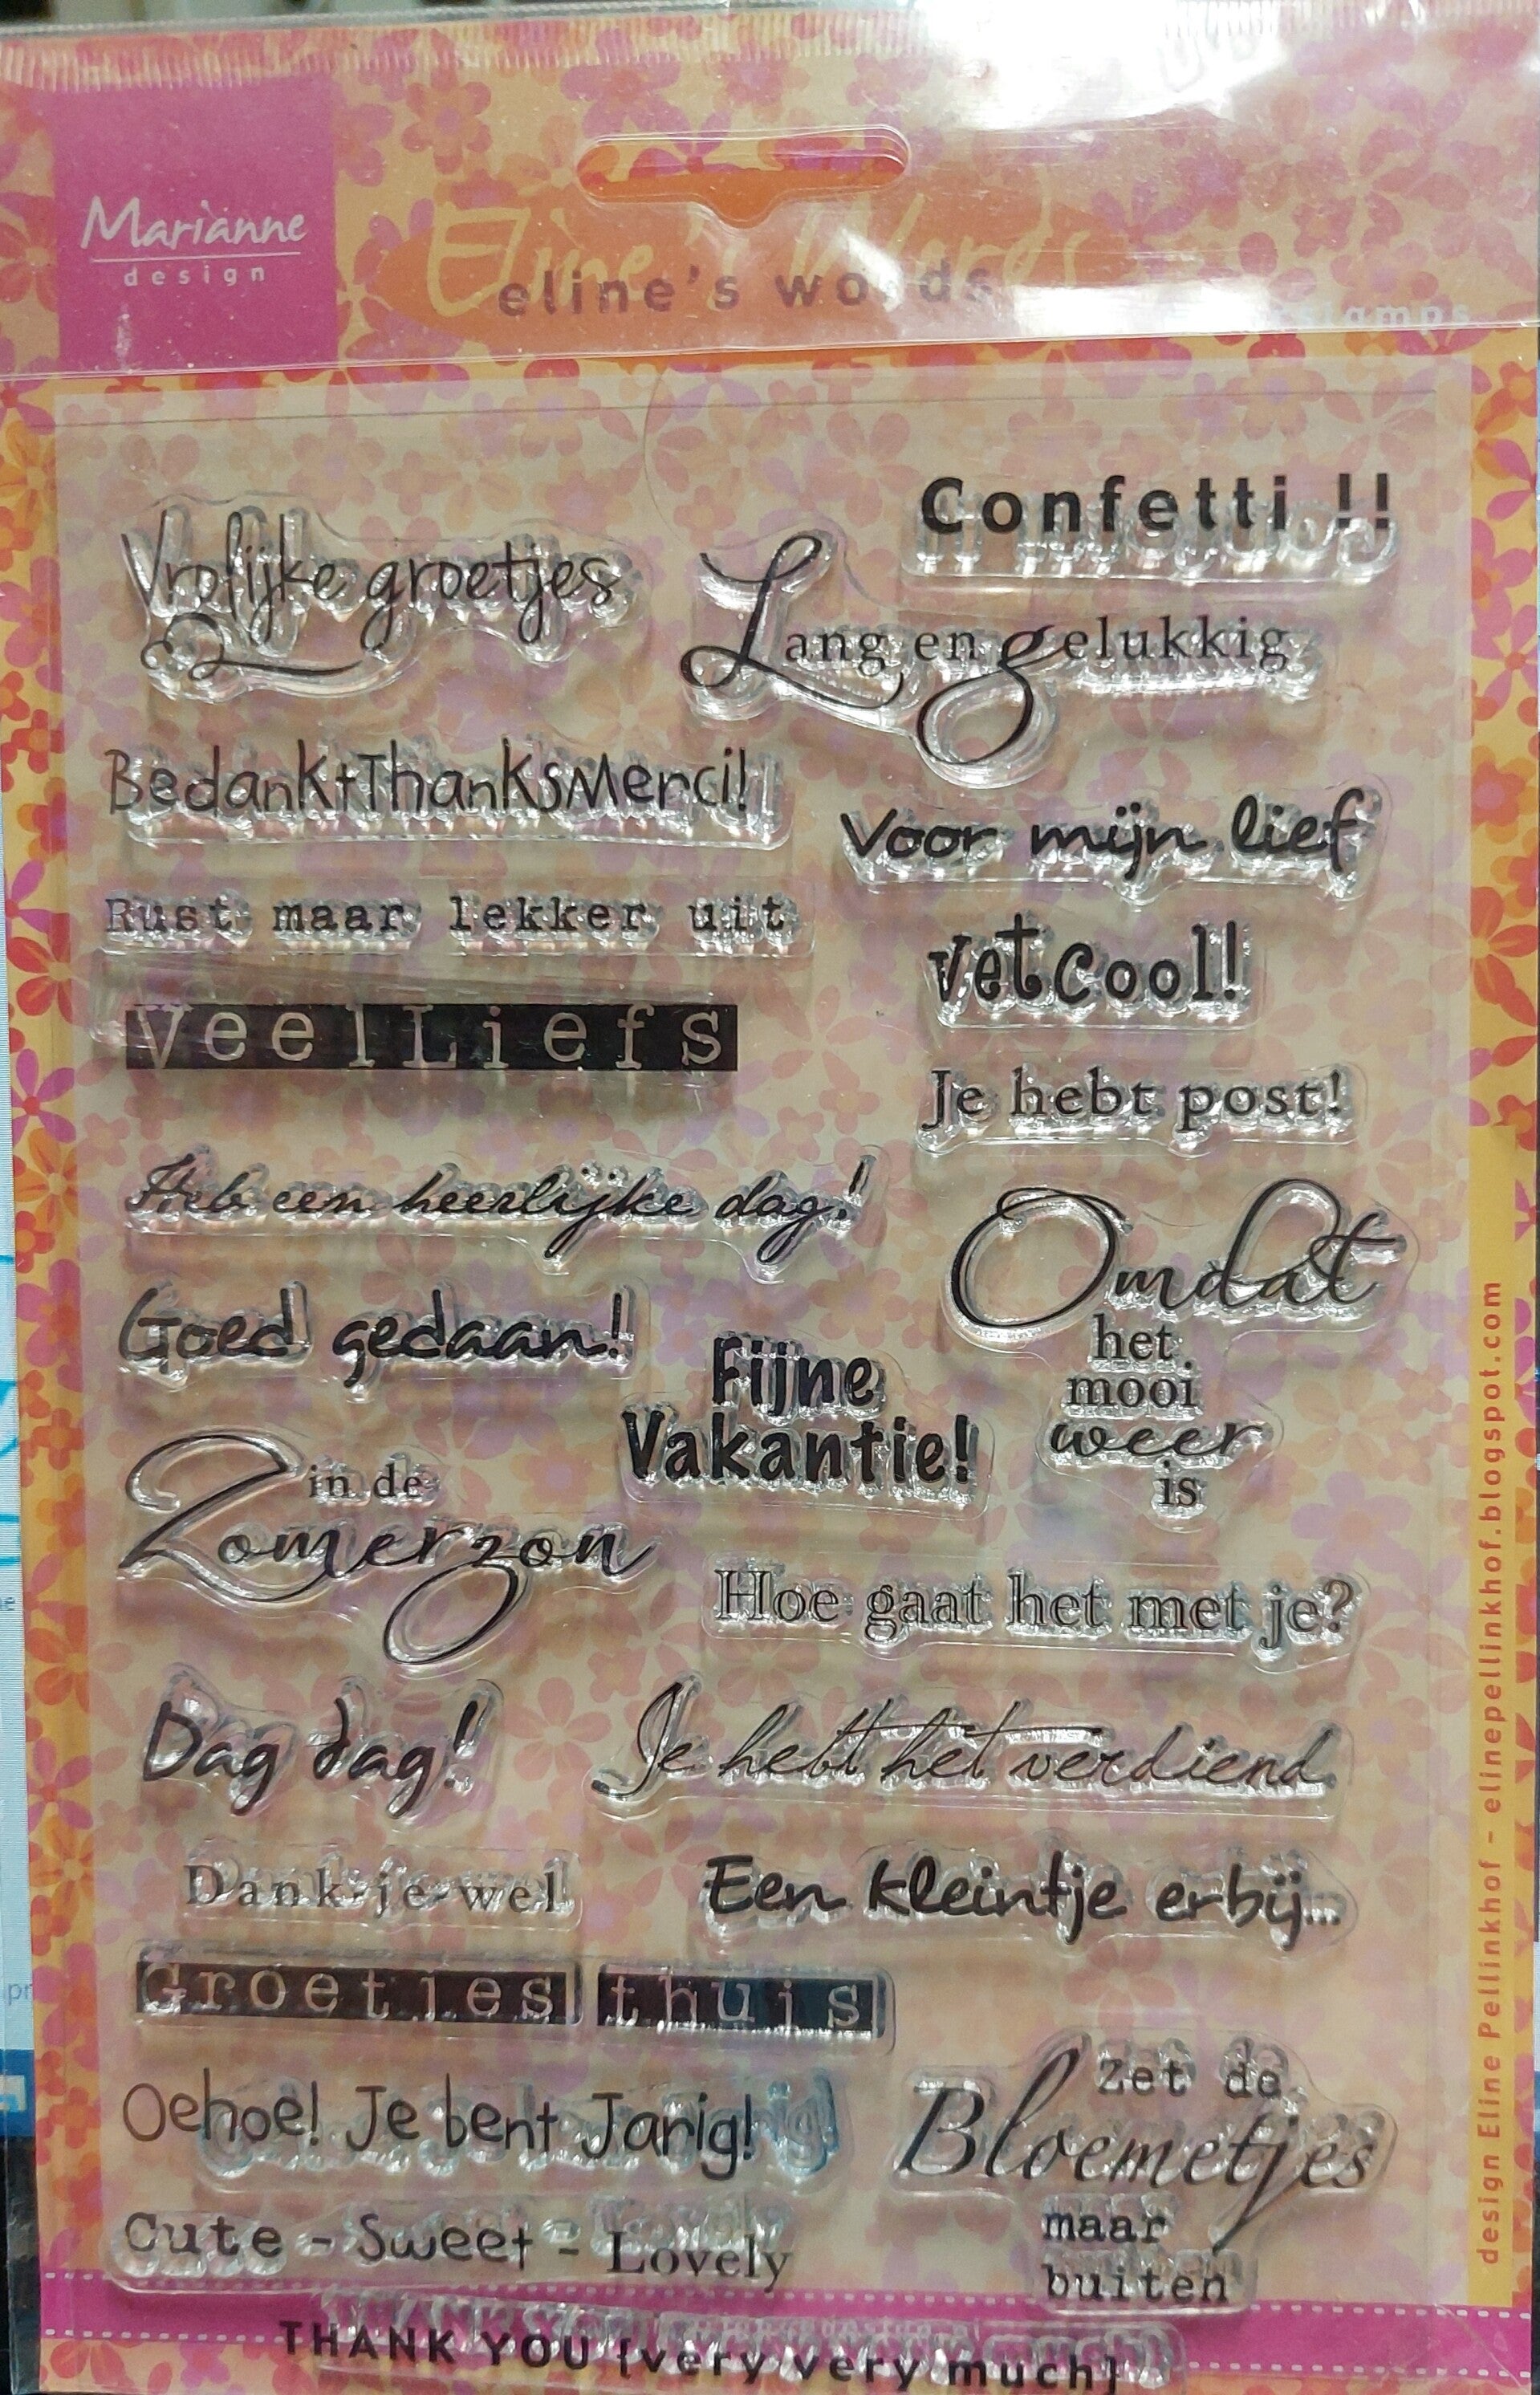 Marianne
design
Eline's Words
eline's words
stamps
Confetti !!
Vrolijke groetjes
Lang en gelukkig
Bedankt+ThanksMerci!
Voor mijn lief
Rust maar lekker uit
vetcool!
VeelLiefs
Je hebt post!
Heb een heerlijke dag!
Omdat
het
mooi
weer
is
Goed gedaan!
Fijne
Vakantie!
in de
Zomerzon
Hoe gaat het met je?
Dag dag!
Je hebt het verdiend
Dank-je-wel
Een kleintje erbij...
Groetjes thuis
Zet de
Bloemetjes
maar
buiten
Oehoe! Je bent Jarig!
Cute - Sweet - Lovely
THANK YOU {very very much}
design Eline Pellinkhof - elinepellinkhof.blogspot.com